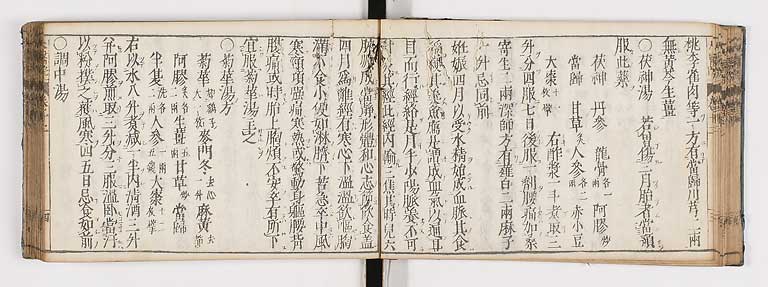 桃李雀肉等一方有當歸川芎各二兩
無黄芩生薑
○茯神湯 若曾傷三月胎者當預
服此藥
茯神 丹參 龍骨各一兩 阿膠炒
當歸 甘草炙 人參各二兩 赤小豆
大棗 枚擘 右酢漿一斗煮取三
升分四服七日後服一劑腰痛加桑
寄生二兩深師方有薤白二兩麻子
一升忌同前
妊娠四月以受水精始成血脈其食
稲秔其羮魚鴈是謂成血氣以通耳
目而行經絡是月手少陽脈養不可
針灸其經此經内輸三焦其時兒六
腑順成當靜形體和心志節飲食蓋
四月爲離經有寒心下温温欲嘔胸
滿不食小便如淋臍下苦急卒中風
寒頸項強痛寒熱或驚動身軀腰背
腹痛或時胎上胸煩不安卒有所下
宜服菊華湯主之
○菊華湯方
菊華 如鷄子大一枚 麥門冬去心一升 麻黄去節
阿膠 生薑 甘草炒 當歸
半夏洗 人參 大棗 枚擘
右以水八升煮減一半内清酒三升
并阿膠煎取三升分二服温臥當汗
以粉撲之避風寒四五日忌食如前
○調中湯